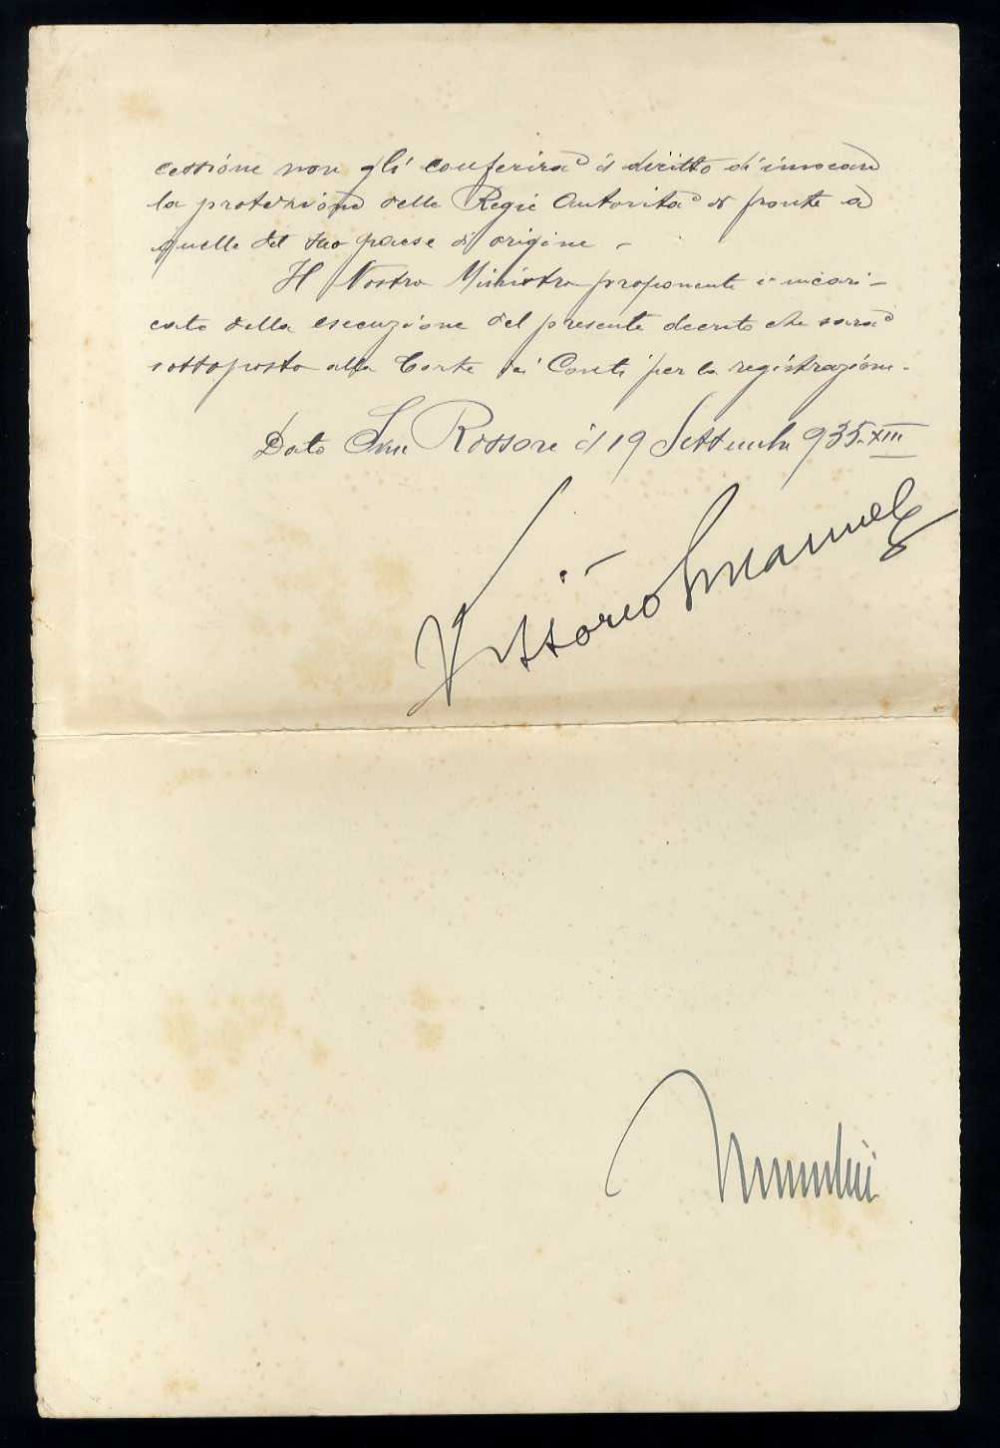 cessione non gli conferirà il diritto di invocare
la protezione delle Regie Autorità di fronte a
quelle del suo paese di origine -
Il Nostro Ministro proponente è incari-
cato della esecuzione del presente decreto che sarà
sottoposto alla Corte dei Conti per la registrazione.
Dato San Rossore il 19 Settembre 935-XIII
Vittorio Emanuele
Mussolini